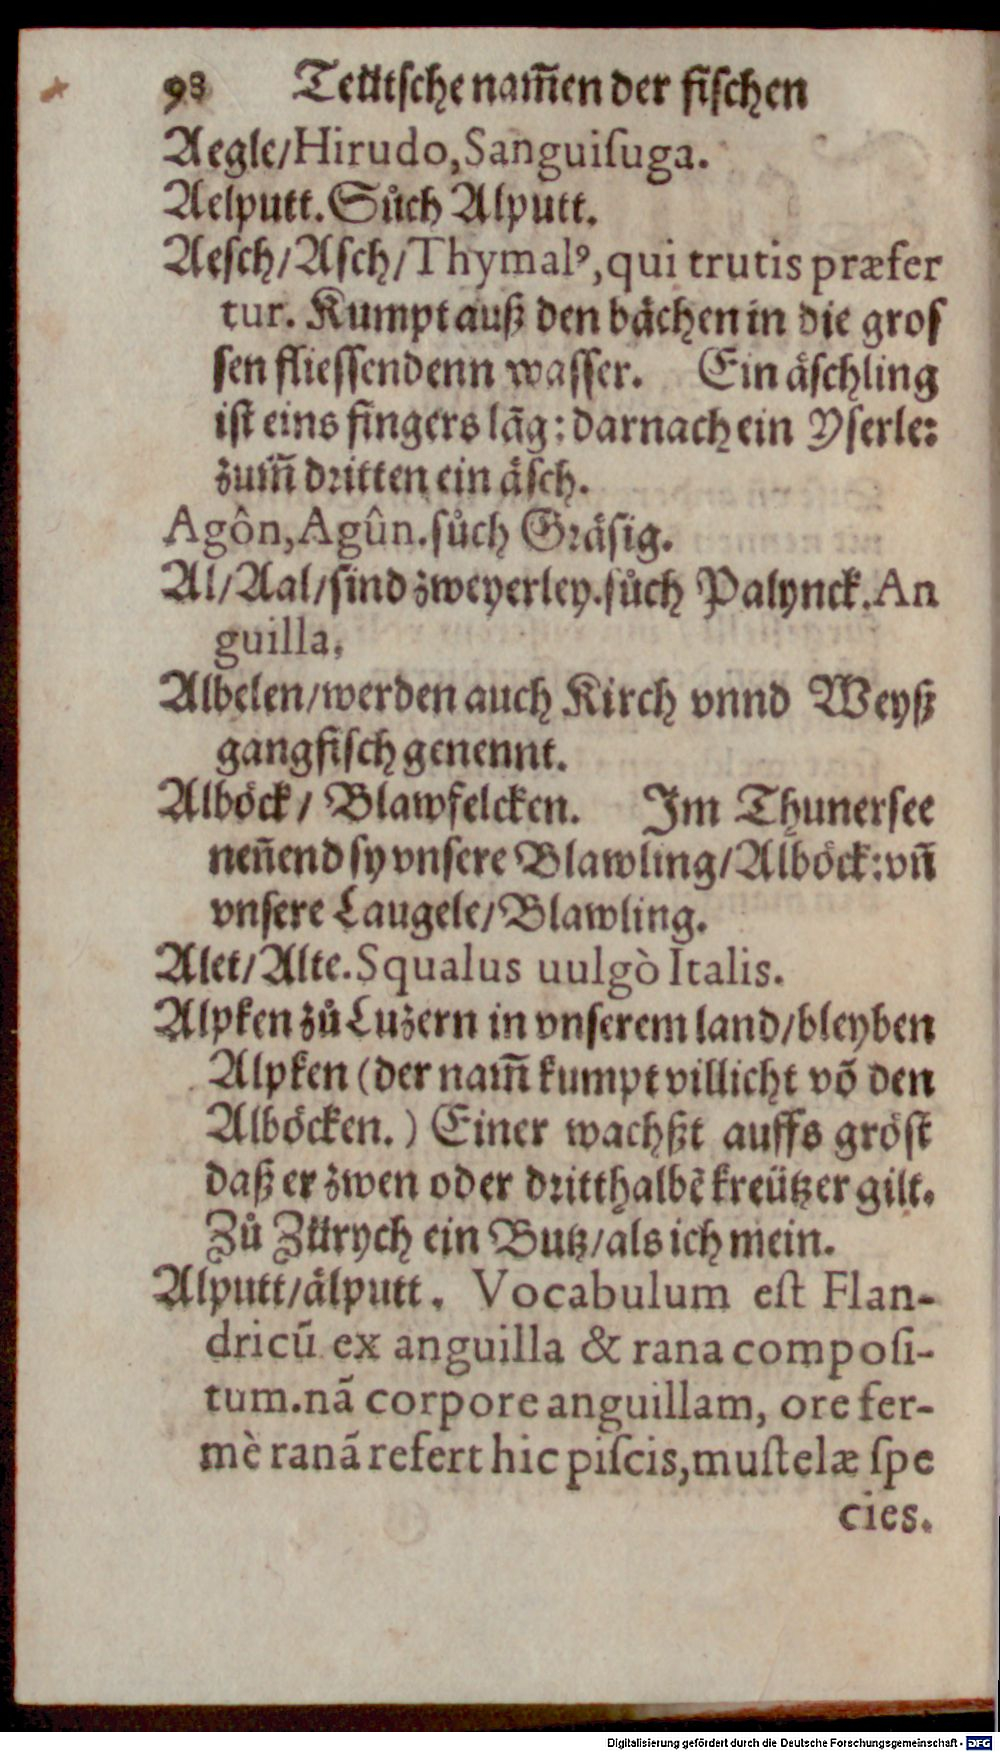 93 Teütsche nam̃en der fischen
Aegle/Hirudo, Sanguiſuga.
Aelputt. Sůch Alputt.
Aeſch/Aſch/Thymalꝰ, qui trutis præfer
tur. Kumpt auß den bächen in die groſ
ſen flieſſendenn waſſer. Ein äſchling
iſt eins fingers lãg: darnach ein Yſerle:
zum̃ dritten ein äſch.
Agôn, Agûn. ſůch Gräſig.
Al/Aal/ſind zweyerley. ſůch Palynck. An
guilla.
Albelen/werden auch Kirch vnnd Weyß
gangfiſch genennt.
Alböck/ Blawfelcken. Im Thunerſee
nen̄end ſy vnſere Blawling/Alböck: vn̄
vnſere Laugele/Blawling.
Alet/Alte. Squalus uulgò Italis.
Alpken zů Luzern in vnſerem land/bleyben
Alpken (der nam̃ kumpt villicht võ den
Alböcken.) Einer wachßt auffs gröſt
daß er zwen oder dritthalbẽ kreützer gilt.
Zů Zürych ein Butz/als ich mein.
Alputt/älputt. Vocabulum eſt Flan-
dricũ ex anguilla & rana compoſi-
tum. nã corpore anguillam, ore fer-
mè ranã refert hic piſcis, muſtelæ ſpe
cies.
Digitalisierung gefördert durch die Deutsche Forschungsgemeinschaft - DFG